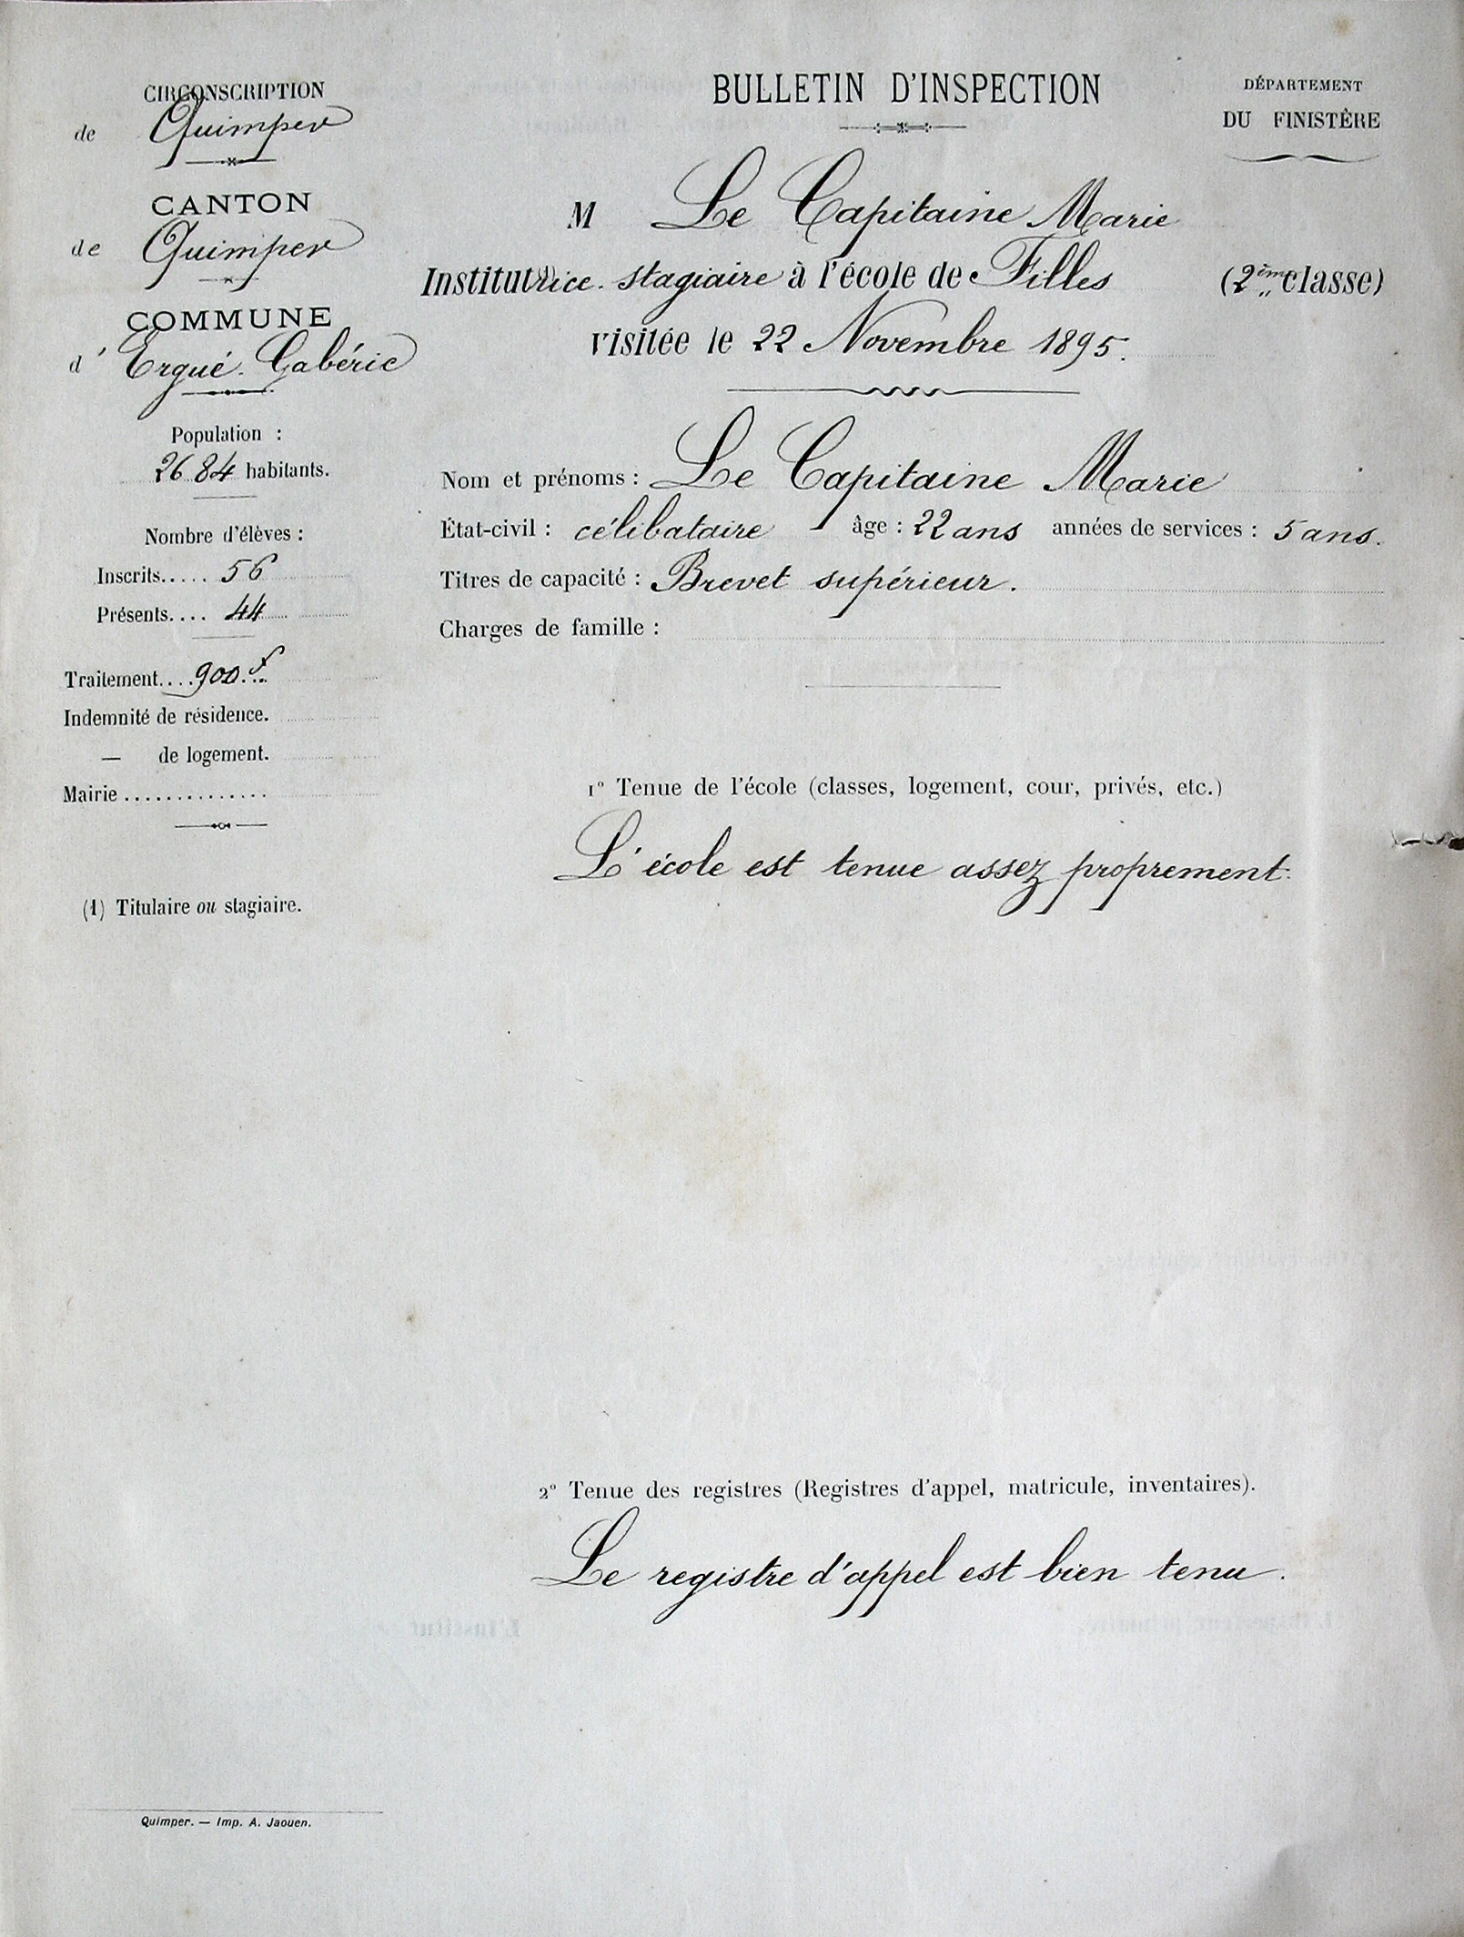 CIRCONSCRIPTION
de Quimper
CANTON
de Quimper
COMMUNE
d' Ergué-Gabéric
Population :
2684 habitants.
Nombre d'élèves :
Inscrits..... 56
Présents.... 44
Traitement....900 f
Indemnité de résidence.
— de logement.
Mairie..............
(1) Titulaire ou stagiaire.
Quimper. — Imp. A. Jaouen.
BULLETIN D'INSPECTION
DÉPARTEMENT
DU FINISTÈRE
M Le Capitaine Marie
Institutrice stagiaire à l'école de Filles (2ème classe)
visitée le 22 Novembre 1895.
Nom et prénoms : Le Capitaine Marie
État-civil : célibataire âge : 22 ans années de services : 5 ans.
Titres de capacité : Brevet supérieur.
Charges de famille :
1° Tenue de l'école (classes, logement, cour, privés, etc.)
L'école est tenue assez proprement.
2° Tenue des registres (Registres d'appel, matricule, inventaires).
Le registre d'appel est bien tenu.